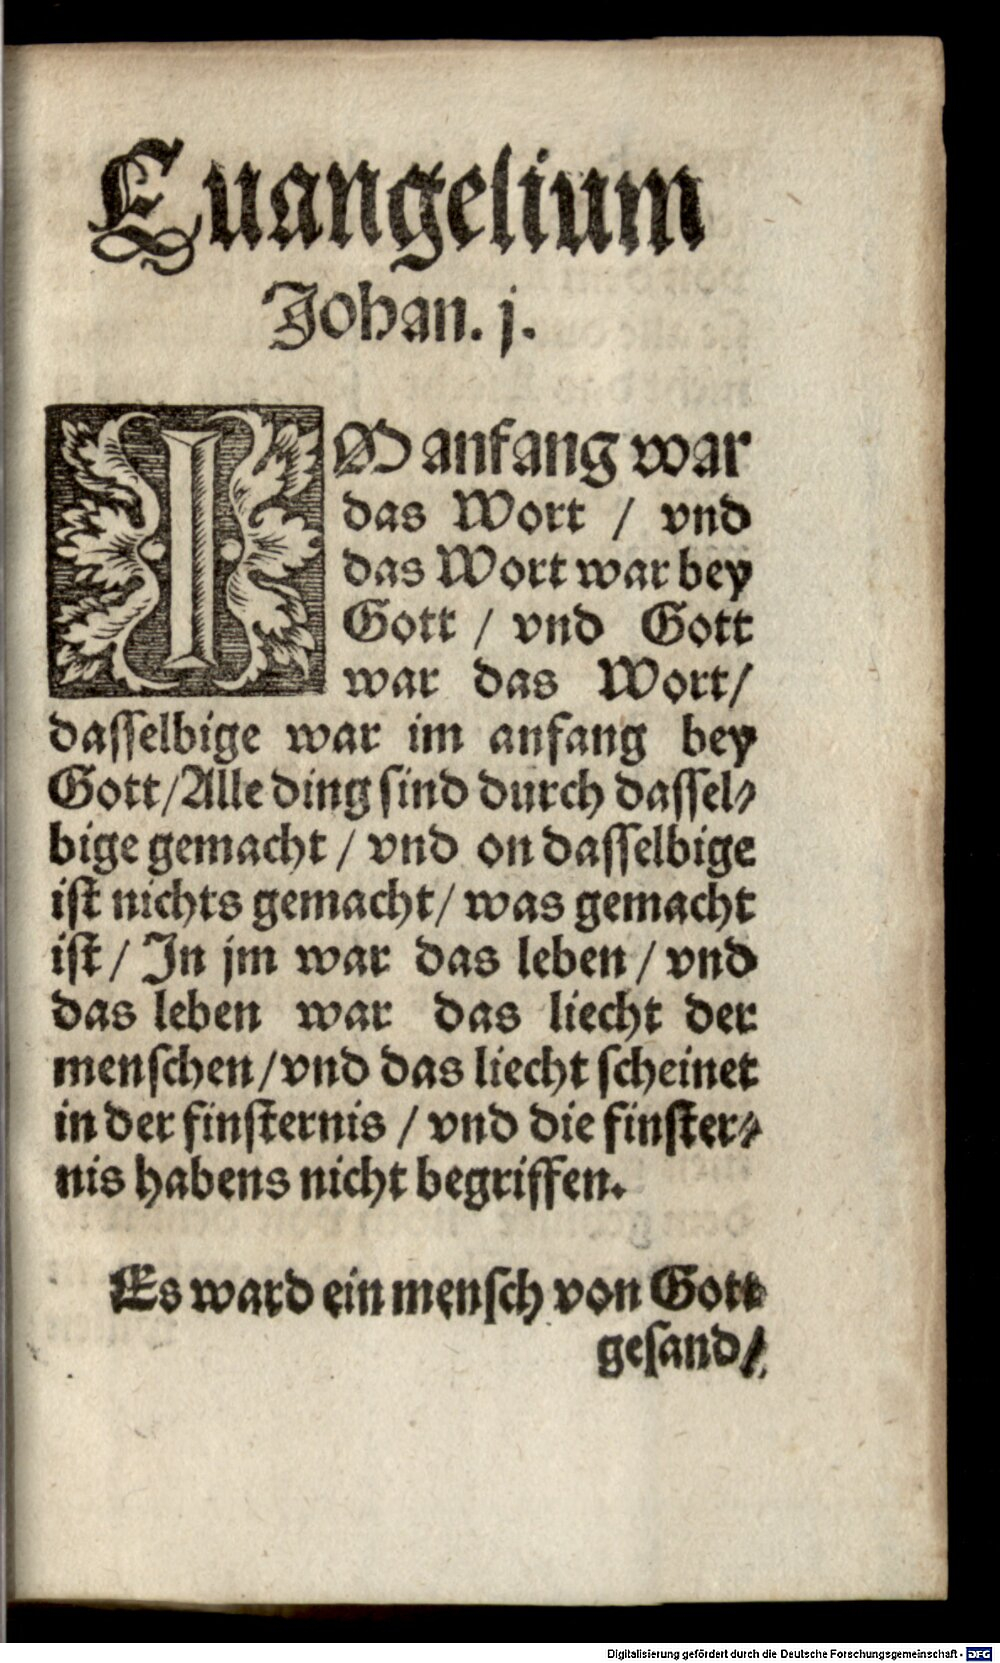 Euangelium
Johan. j.
IM anfang war
das Wort / vnd
das Wort war bey
Gott / vnd Gott
war das Wort/
dasselbige war im anfang bey
Gott/Alle ding sind durch dassel⸗
bige gemacht / vnd on dasselbige
ist nichts gemacht/ was gemacht
ist / In jm war das leben / vnd
das leben war das liecht der
menschen/vnd das liecht scheinet
in der finsternis / vnd die finster⸗
nis habens nicht begriffen.
Es ward ein mensch von Gott
gesand/
Digitalisierung gefördert durch die Deutsche Forschungsgemeinschaft - DFG